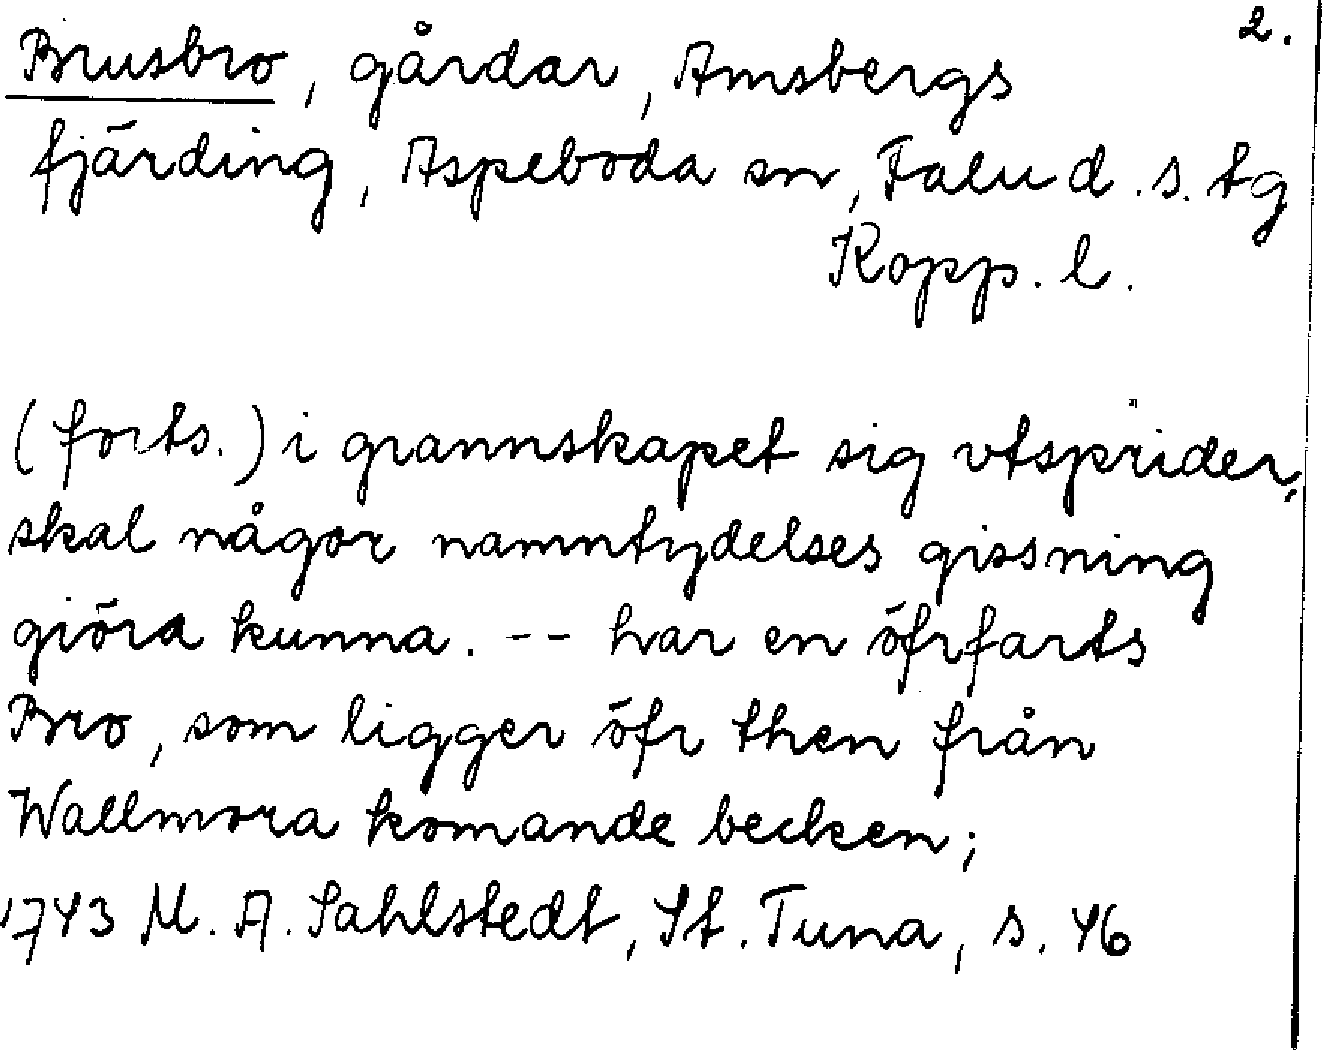 2.
Brusbro, gårdar, Amsbergs
fjärding, Aspeboda sn, Falu d. s. tg
Kopp. l.
(forts.) i grannskapet sig vtsprider,
skal någor namntydelses gissning
giöra kunna. -- har en öfrfarts
Bro, som ligger öfr then från
Wallmora komande becken;
1743 M. A. Sahlstedt, St. Tuna, s. 46